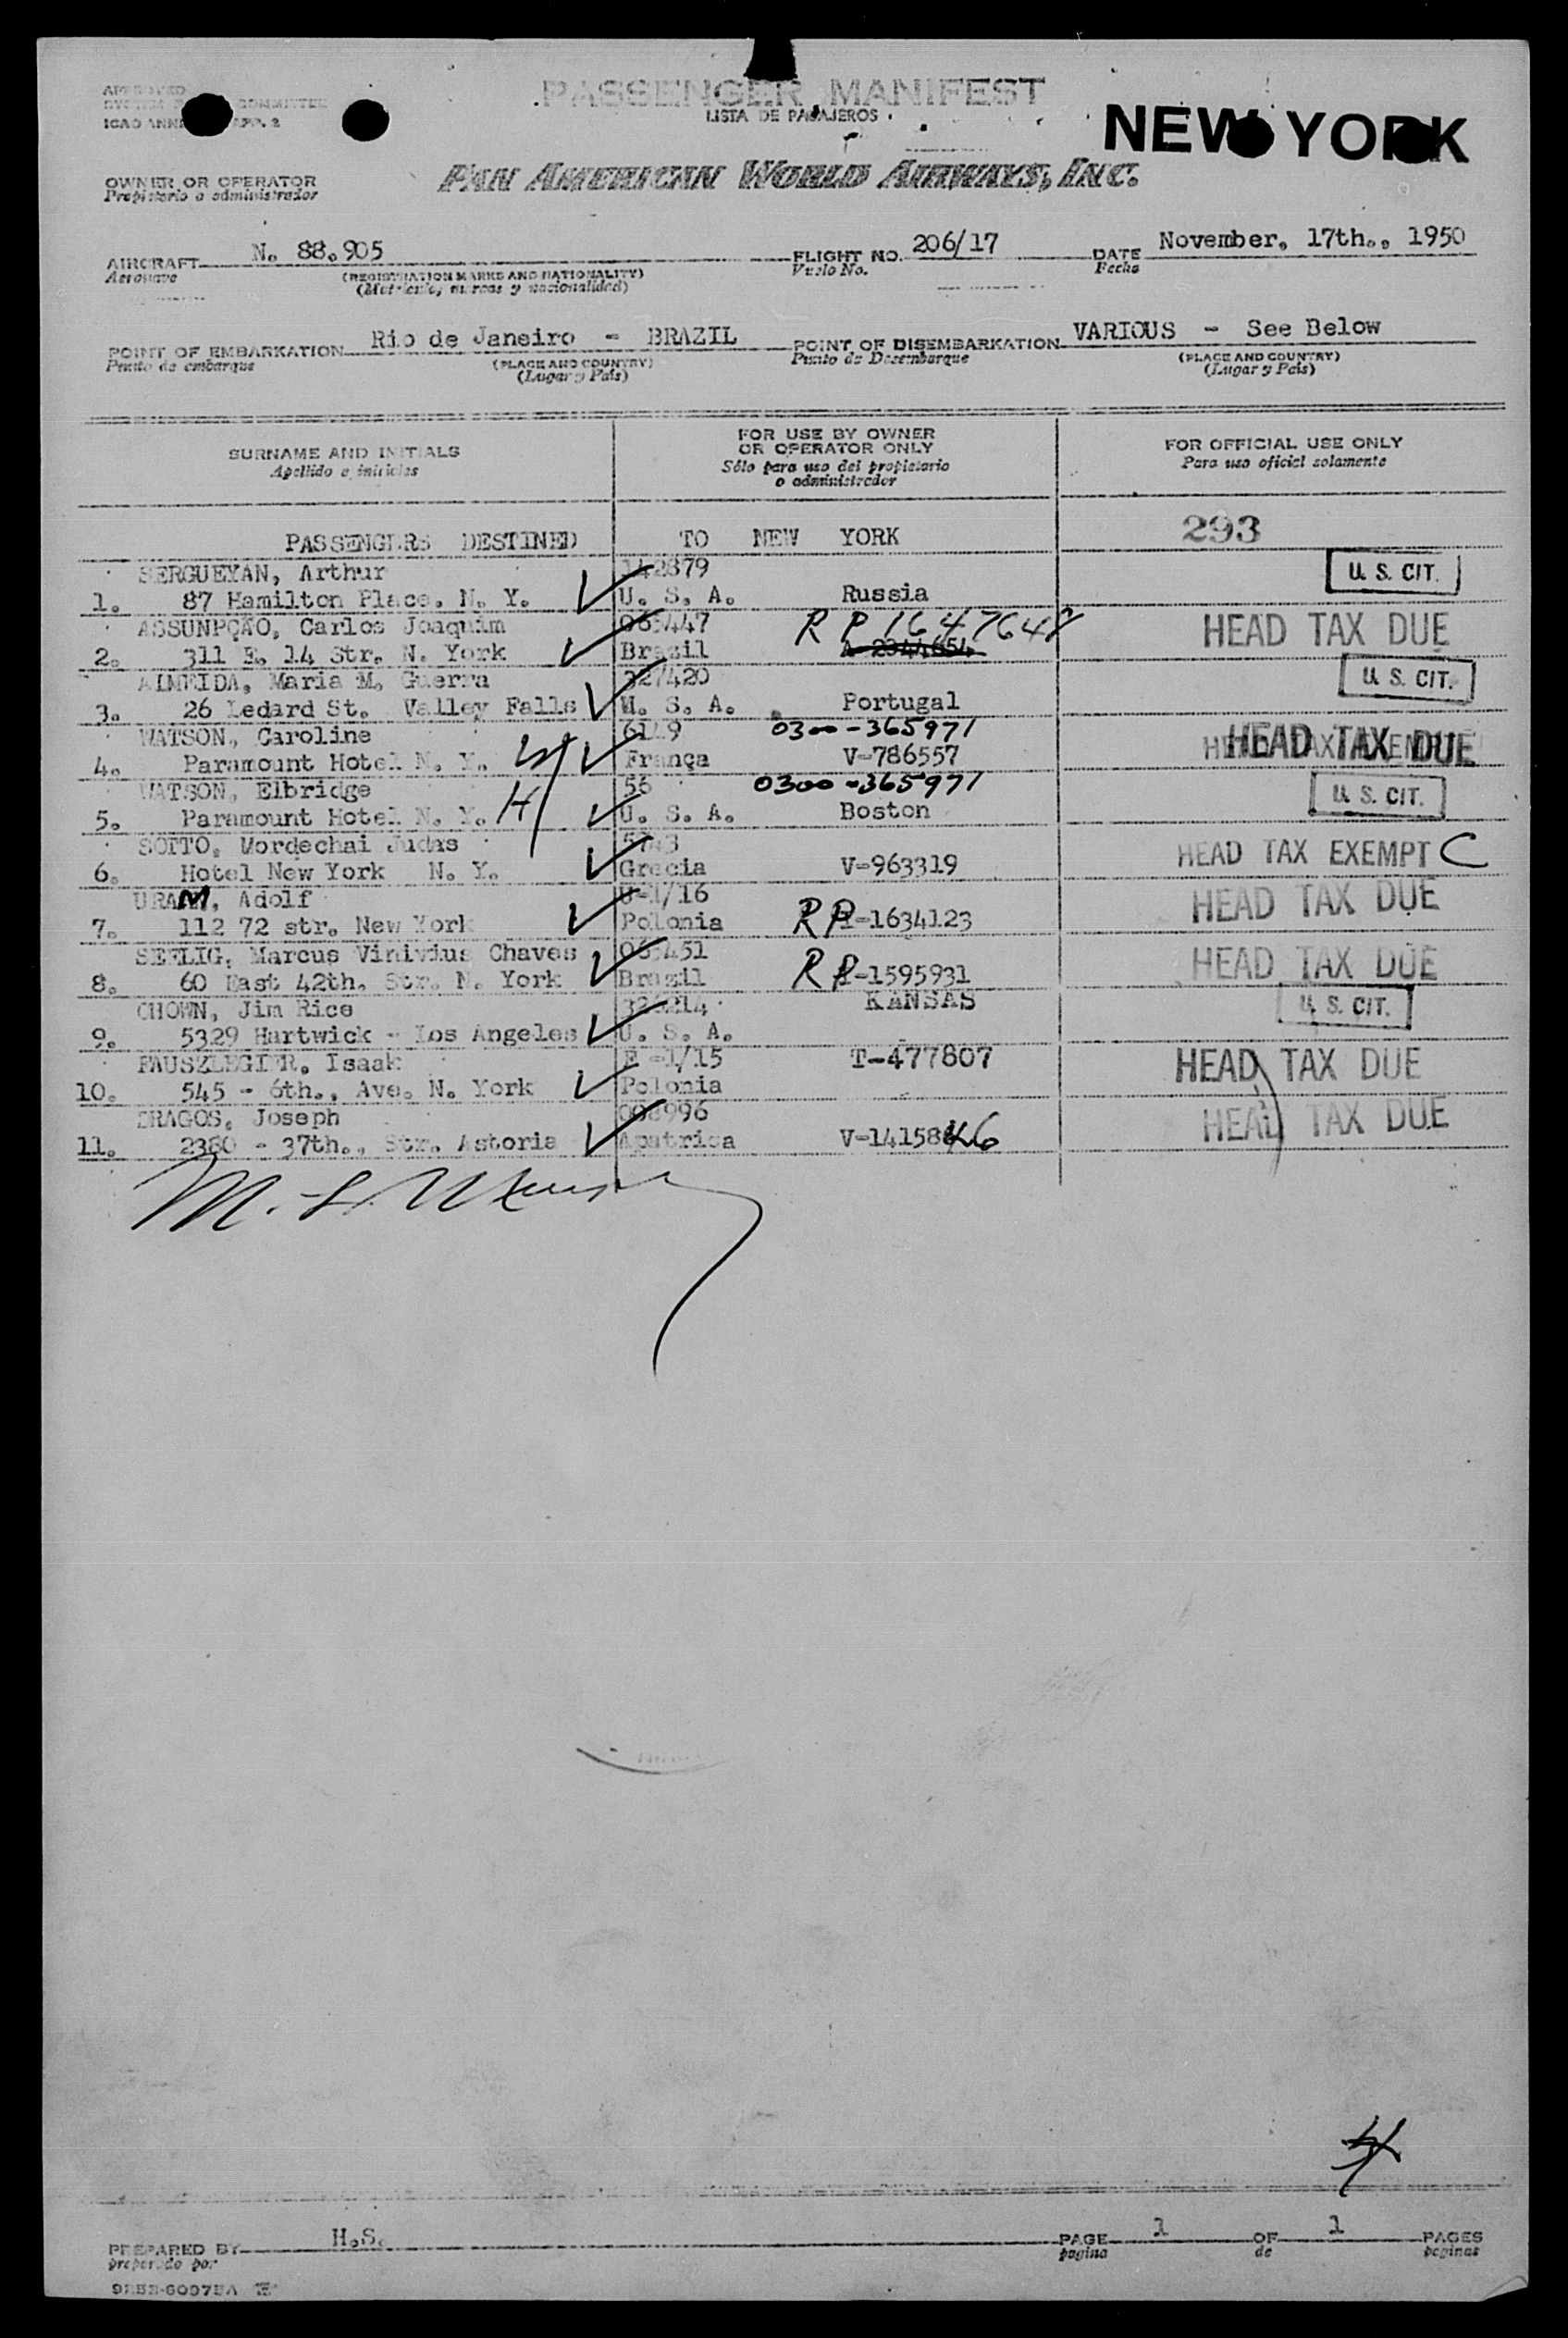 APPROVED
COMMITTEE
ICAO ANNEX APP. 2
PASSENGER MANIFEST
LISTA DE PASAJEROS
NEW YORK
OWNER OR OPERATOR
Propietario o administrador
PAN AMERICAN WORLD AIRWAYS, INC.
AIRCRAFT N. 88.905 FLIGHT NO. 206/17 DATE November, 17th., 1950
Aeronave (REGISTRATION MARKS AND NATIONALITY) Vuelo No. Fecha
(Matrícula, marcas y nacionalidad)
POINT OF EMBARKATION Rio de Janeiro - BRAZIL POINT OF DISEMBARKATION VARIOUS - See Below
Punto de embarque (PLACE AND COUNTRY) Punto de Desembarque (PLACE AND COUNTRY)
(Lugar y País) (Lugar y País)
SURNAME AND INITIALS FOR USE BY OWNER OR OPERATOR ONLY FOR OFFICIAL USE ONLY
Apellido e iniciales Sólo para uso del propietario o administrador Para uso oficial solamente
PASSENGERS DESTINED TO NEW YORK 293
SERGUEYAN, Arthur 142879 U. S. CIT.
1. 87 Hamilton Place. N. Y. U. S. A. Russia
ASSUNPÇÃO, Carlos Joaquim R P 1647648 HEAD TAX DUE
2. 311 E. 14 Str. N. York Brazil
ALMEIDA, Maria M. Guerra 327420 U. S. CIT.
3. 26 Ledard St. Valley Falls U. S. A. Portugal
WATSON, Caroline 6149 0300-365971 HEAD TAX DUE
4. Paramount Hotel N. Y. França V-786557
WATSON, Elbridge 56 0300-365971 U. S. CIT.
5. Paramount Hotel N. Y. H U. S. A. Boston
SOTTO, Mordechai Judas HEAD TAX EXEMPT C
6. Hotel New York N. Y. Grecia V-963319
URAM, Adolf HEAD TAX DUE
7. 112 72 str. New York Polonia R P-1634123
SEELIG, Marcus Vinivius Chaves HEAD TAX DUE
8. 60 East 42th. Str. N. York Brazil R P-1595931
CHOWN, Jim Rice KANSAS U. S. CIT.
9. 5329 Hartwick - Los Angeles U. S. A.
PAUSZLEGIER, Isaak E-1/15 T-477807 HEAD TAX DUE
10. 545 - 6th., Ave. N. York Polonia
DRAGOS, Joseph HEAD TAX DUE
11. 2380 - 37th., Str. Astoria Apatrida
PREPARED BY H.S. PAGE 1 OF 1 PAGES
preparado por pagina de paginas